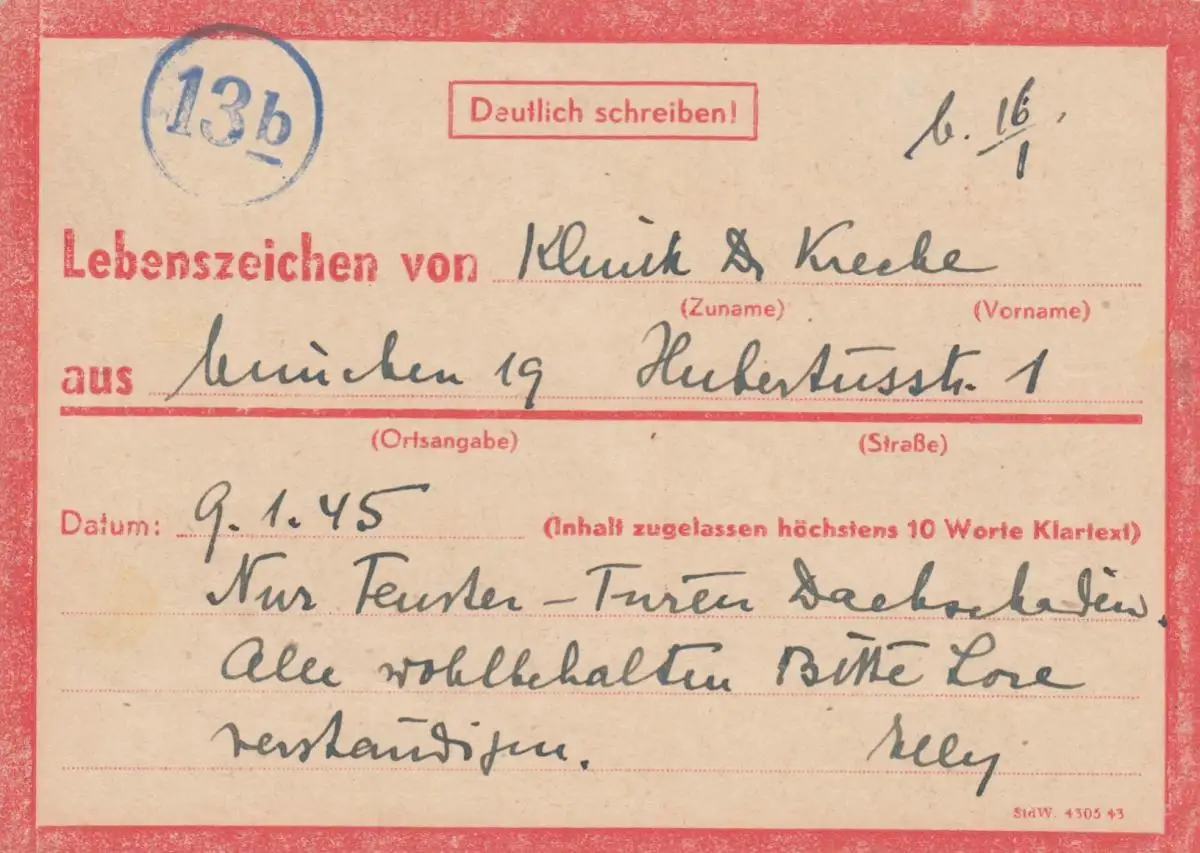 13b
Deutlich schreiben!
b. 16/1
Lebenszeichen von Klinik Dr Krecke
(Zuname) (Vorname)
aus München 19 Hubertusstr. 1
(Ortsangabe) (Straße)
Datum: 9.1.45 (Inhalt zugelassen höchstens 10 Worte Klartext)
Nur Fenster – Türen Dachschaden.
Alle wohlbehalten Bitte Lore
verständigen. Elly
StdW. 4305 43